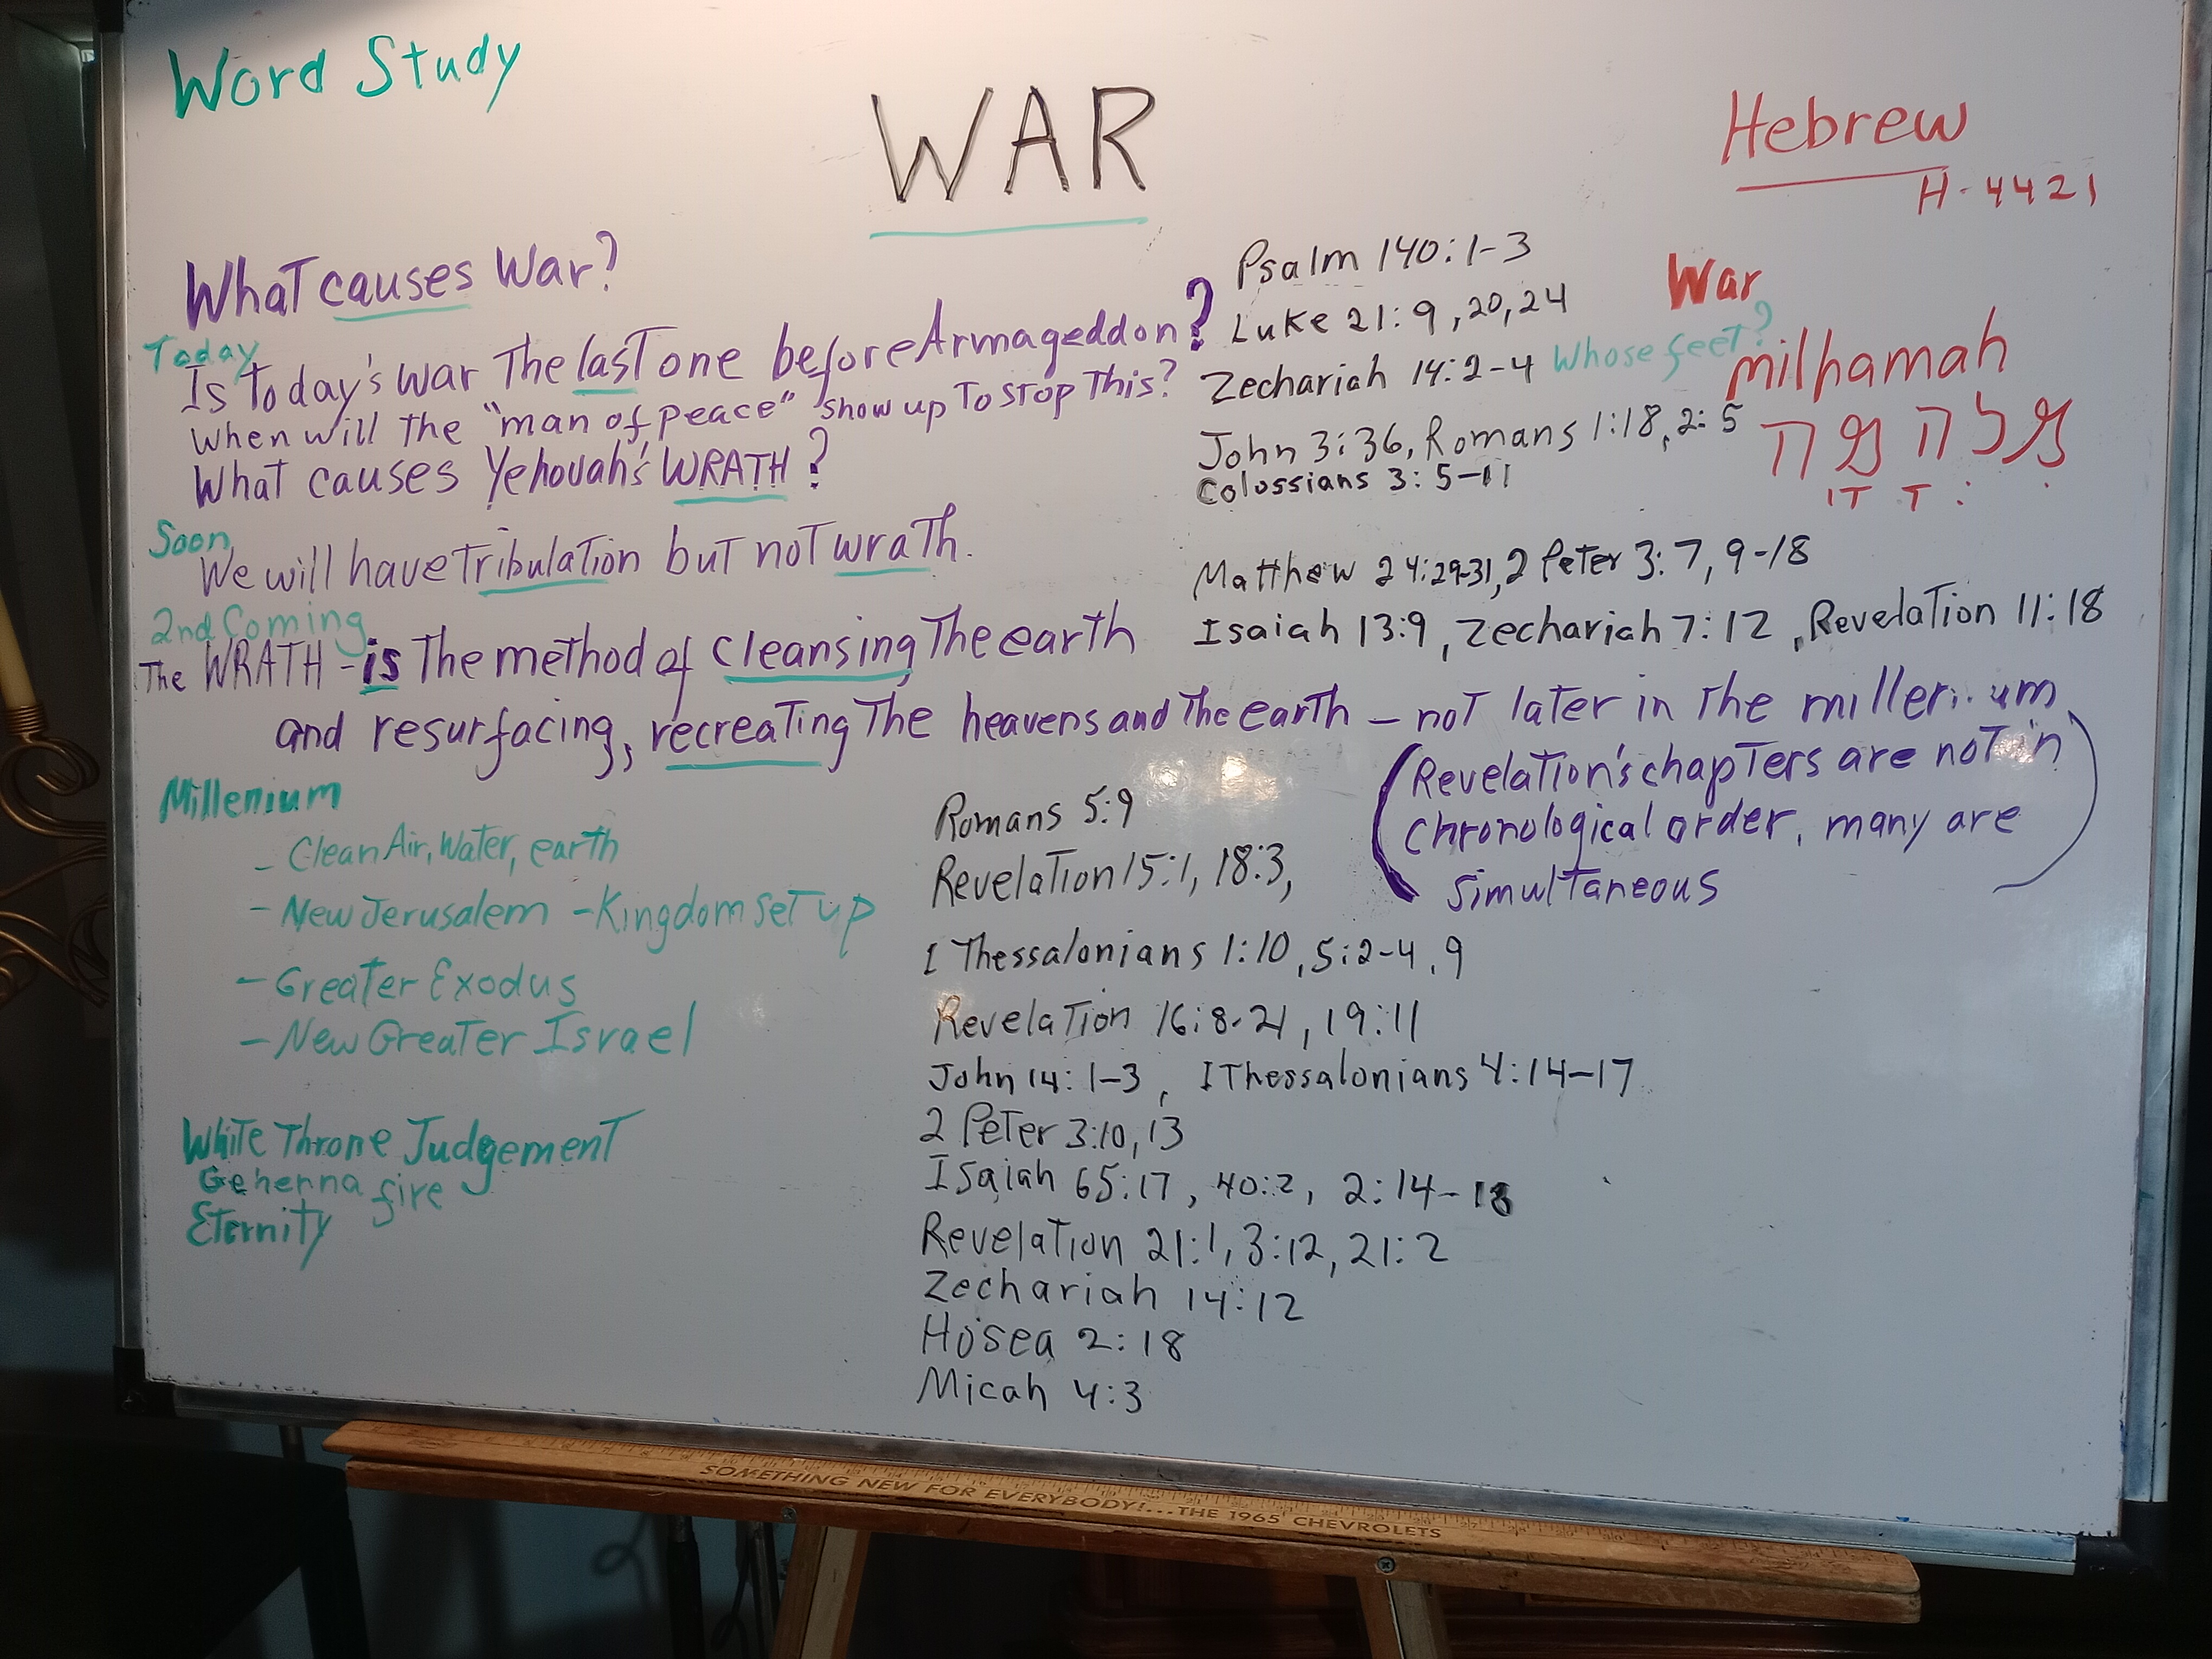 Word Study
WAR
Hebrew
H-4421
What causes War?
Psalm 140:1-3
War
Today
Is Today's war The last one before Armageddon?
Luke 21:9,20,24
milhamah
When will the "man of peace" show up To stop This?
Zechariah 14:2-4 Whose feet?
What causes Yehovah's WRATH?
John 3:36, Romans 1:18, 2:5
Colossians 3:5-11
Soon
We will have Tribulation but not wrath.
Matthew 24:29-31, 2 Peter 3:7, 9-18
2nd Coming
The WRATH - is The method of cleansing The earth
Isaiah 13:9, Zechariah 7:12, Revelation 11:18
and resurfacing, recreating The heavens and The earth - not later in The millenium
(Revelation's chapters are not in
chronological order, many are
simultaneous)
Millenium
- Clean Air, Water, earth
- New Jerusalem - Kingdom set up
- Greater Exodus
- New Greater Israel
White Throne Judgement
Gehenna fire
Eternity
Romans 5:9
Revelation 15:1, 18:3,
I Thessalonians 1:10, 5:2-4, 9
Revelation 16:8-21, 19:11
John 14:1-3, I Thessalonians 4:14-17
2 Peter 3:10, 13
Isaiah 65:17, 40:2, 2:14-18
Revelation 21:1, 3:12, 21:2
Zechariah 14:12
Hosea 2:18
Micah 4:3
SOMETHING NEW FOR EVERYBODY!...THE 1965 CHEVROLETS